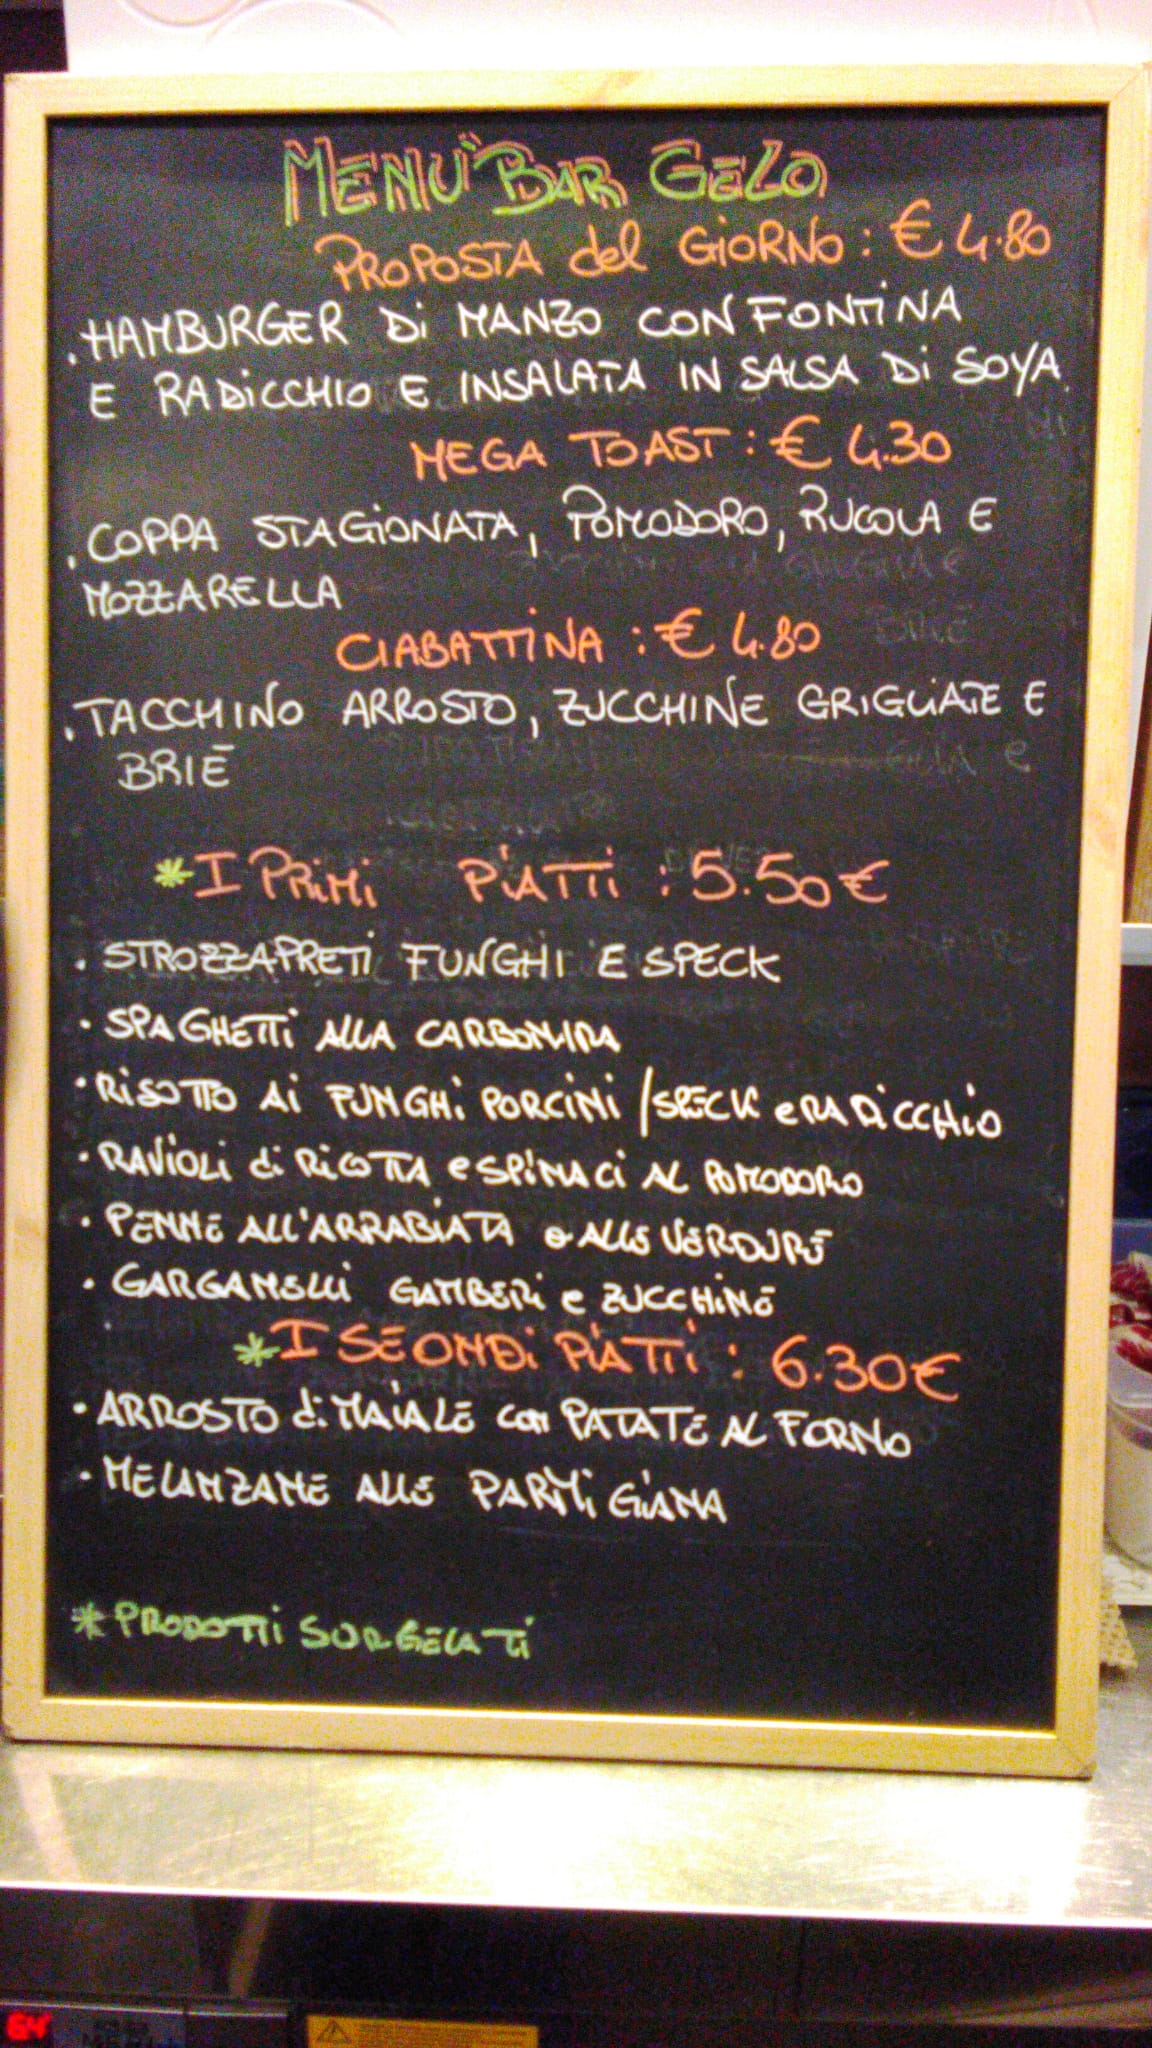 MENU" BAR GELO
PROPOSTA del GIORNO : € 4.80
. HAMBURGER Di MANZO CON FONTINA
E RADICCHIO E INSALATA IN SALSA Di SOYA.
MEGA TOAST : € 4.30
. COPPA STAGIONATA, POMODORO, RUCOLA E
MOZZARELLA
CIABATTINA : € 4.80
. TACCHINO ARROSTO, ZUCCHINE GRIGLIATE E
BRIE
* I PRIMI PIATTI : 5.50 €
. STROZZAPRETI FUNGHI E SPECK
. SPAGHETTI ALLA CARBONARA
. RISOTTO AI FUNGHI PORCINI / SPECK e RADICCHIO
. RAVIOLI di RICOTTA e SPINACI AL POMODORO
. PENNE ALL'ARRABIATA o ALLE VERDURE
. GARGANELLI GAMBERI e ZUCCHINE
* I SEONDI PIATTI : 6.30 €
. ARROSTO di MAIALE con PATATE AL FORNO
. MELANZANE ALLE PARMIGIANA
* PRODOTTI SURGELATI
64